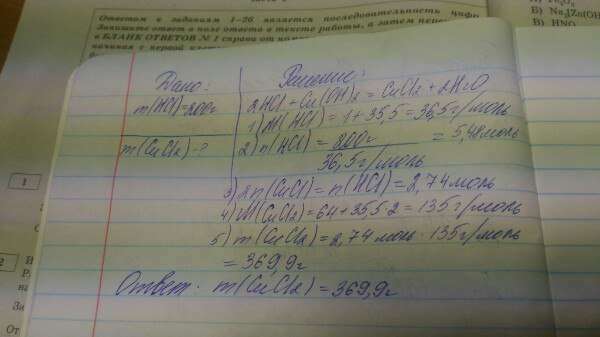 Ответом к заданиям 1–26 является последовательность цифр.
Запишите ответ в поле ответа в тексте работы, а затем
в БЛАНК ОТВЕТОВ № 1 справа от
начиная с первой
В) Na₂[Zn(OH
В) HNO
Дано:
m(HCl)=200г
m(CuCl₂)-?
Решение:
2HCl+Cu(OH)₂=CuCl₂+2H₂O
1) M(HCl)=1+35,5=36,5г/моль
2) n(HCl)=200г/36,5г/моль=5,48моль
3) 2n(CuCl)=n(HCl)=2,74моль
4) M(CuCl₂)=64+35,5·2=135г/моль
5) m(CuCl₂)=2,74моль·135г/моль
=369,9г
Ответ: m(CuCl₂)=369,9г
1
2
От